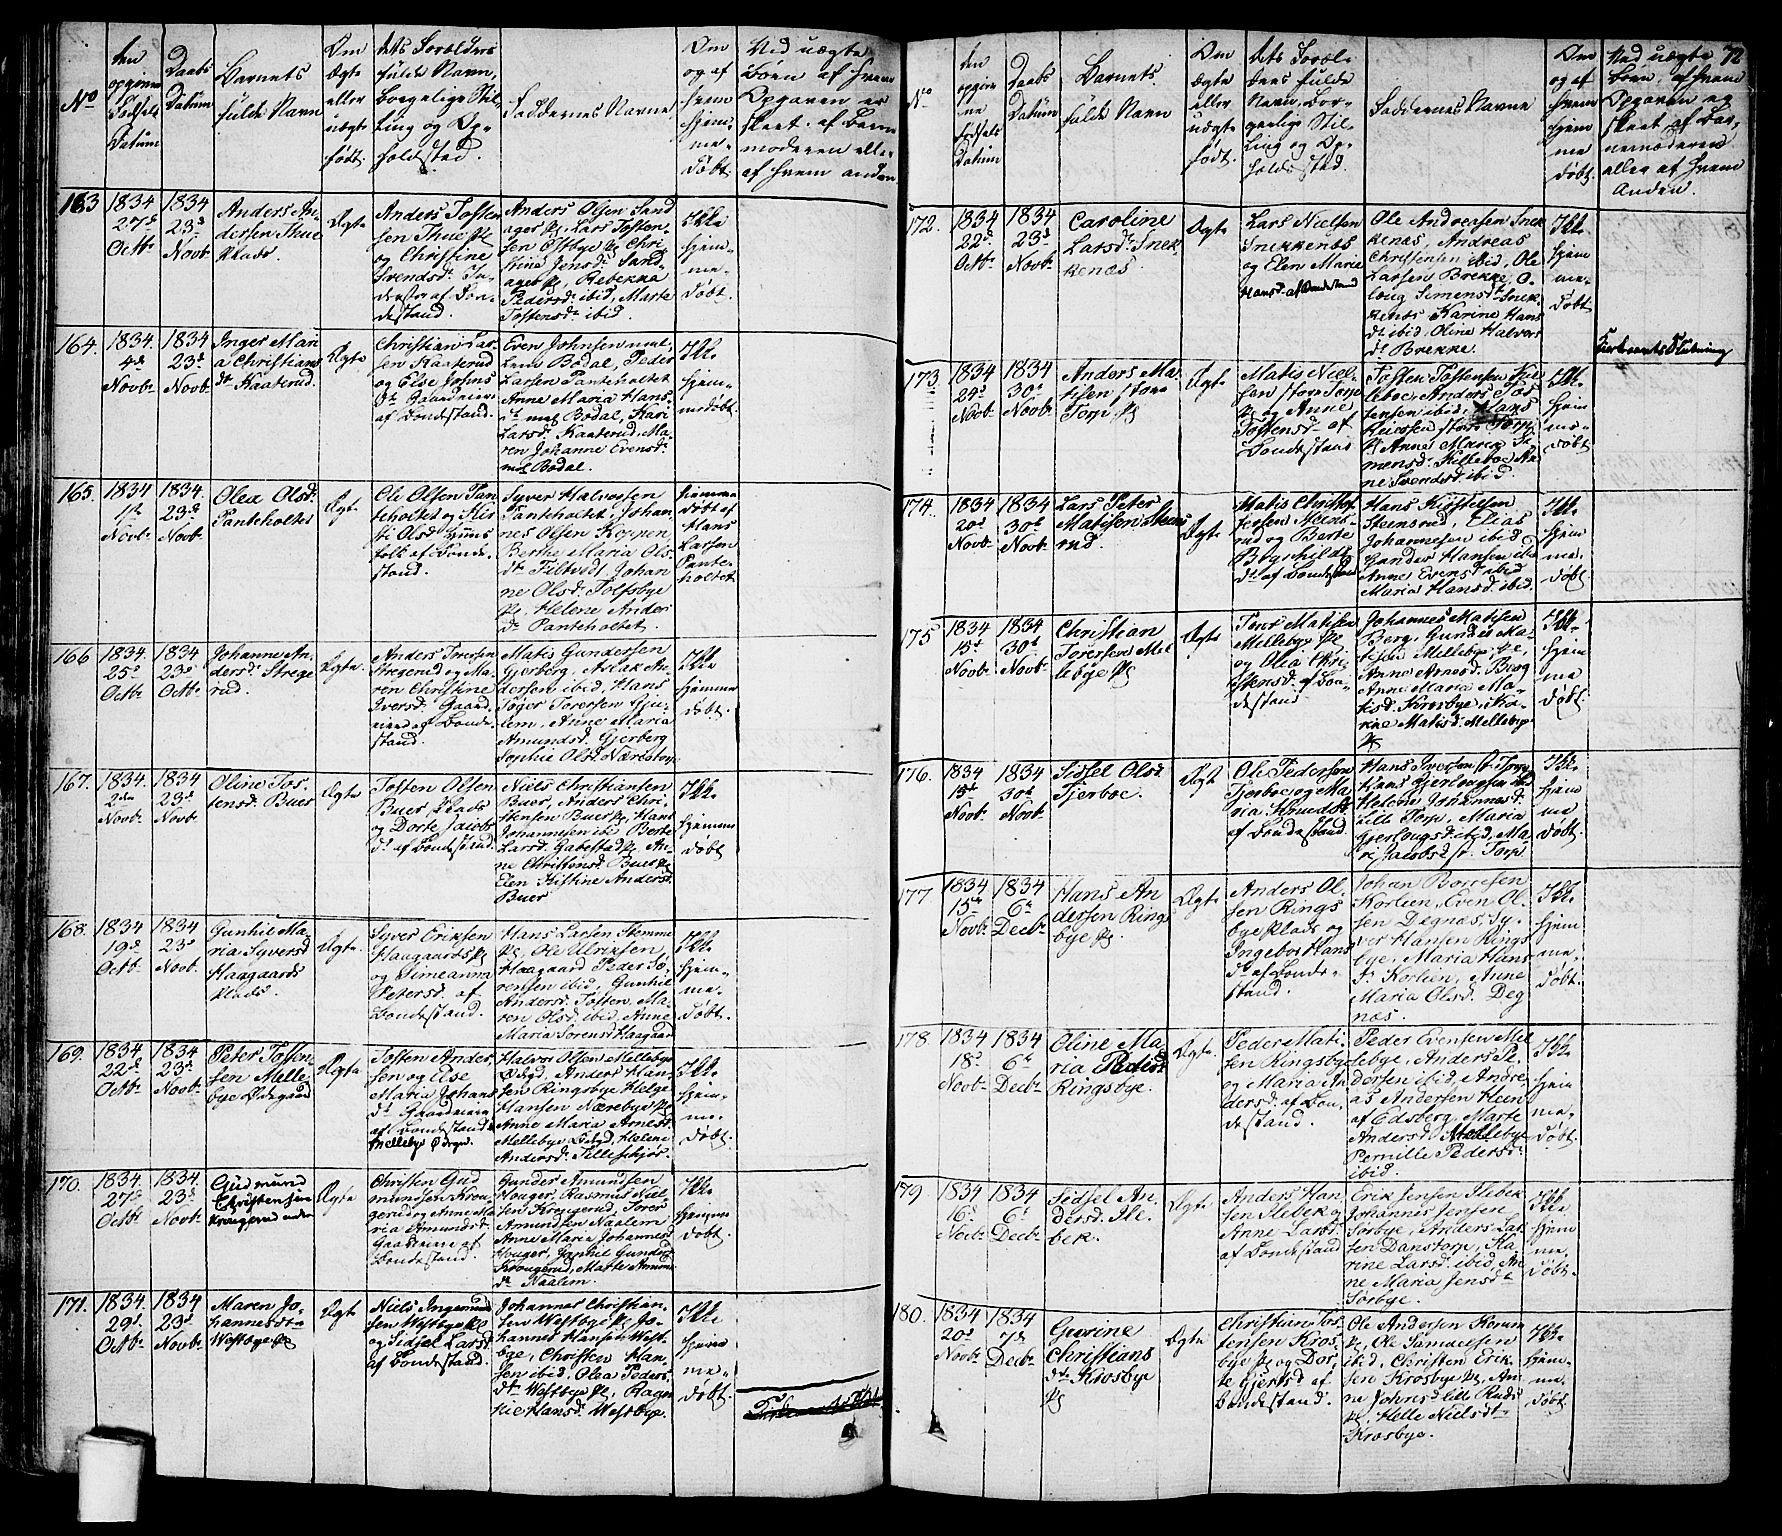 No
den
opgivne
Fødsels
Datum
Daabs
Datum
Barnets
fulde Navn
Om
ægte
eller
uægte
født.
dets Forældres
fulde Navn,
borgelige Stil-
ling og Op-
holdsted.
Faddernes Navne
Om
og af
hvem
hjem-
me-
døbt.
Ved uægte
Børn af hvem
Opgaven er
skeet. af Barne
moderen elle-
af hvem anden
163
1834
27de
Octbr
1834
23d
Novbr
Anders An-
dersen Thue
Plads.
Ægte
Anders Tosten
sen Thue Pl
og Christine
Svendsd. In-
derster af Bon-
destand.
Anders Olsen Sand
ager Pl, Lars Tosten-
sen Ostbye Pl, Chri-
stine Jensd. Sand-
ager Pl, Rebekka
Pedersd. ibid, Marte
Tostensd. ibid.
Ikke
hjem-
me-
døbt.
164.
1834.
4d
Novbr
1834
23d
Novbr
Inger Mari
a Christians
dr Kaaterud.
Ægte
Christian Lar-
sen Kaaterud
og Else Johns
dr Gaardmænd
af Bondestand.
Even Johnsen mel-
lem Bodal, Peder
Larsen Panteholtet
Anne Maria Hans-
dr mel Bodal, Kari
Larsd. Kaaterud, Ma-
ren Johanne Evensd.
mel Bodal.
Ikke
hjem-
medøbt.
165.
1834
1st
Novbr
1834.
23d
Novbr
Olea Olsd.
Panteholtet
Ægte
Ole Olsen Pan
teholtet og Kir-
sti Olsd. Huus
folk af Bonde-
stand.
Syver Halvorsen
Panteholtet, Johan-
nes Olsen Koppen
Berthe Maria Ols-
dr Filtvedt, Johan
ne Olsd. Tolfsbye
Pl, Helene Anders
dr Panteholtet.
hjemme
døbt af
Hans
Larsen
Pante-
holtet
166
1834.
25d
Octbr
1834
23d
Octbr
Johanne An-
dersd. Strege
rud.
Ægte.
Anders Torersen
Stregerud og Ma-
ren Christine
Iversd. Gaard
mænd af Bonde
stand.
Matis Gundersen
Gjerberg, Aslak An-
dersen ibid, Hans
Toger Torersen Hu-
lem, Anne Maria
Amundsd. Gjerberg
Sophie Olsd. Nærestorp
Ikke
hjemme
døbt.
167.
1834.
2den
Novbr
1834
23d
Novbr
Oline Tos-
tensd. Buer
Ægte
Tosten Olsen
Buer Plads
og Dorte Jacobs
dr af Bondestand.
Niels Christiansen
Buer, Anders Chri-
stensen Buer Pl, Hans
Johannesen ibid Berte
Larsd. Gabestad Pl, An-
ne Christensd. Buer Pl,
Elen Kistine Andersd.
Buer
Ikke
hjemme
døbt
168.
1834
19d
Octbr
1834
23d
Novbr
Gunhil Ma-
ria Syversd.
Haagaards
Plads.
Ægte.
Syver Eriksen
Haagaards Pl
og Simeanna
Petersd. af
Bondestand.
Hans Larsen Stemme
Pl, Ole Ulriksen
Haagaard Peder Sø-
rensen ibid, Gunhil
Andersd. Tosten, Ma-
ren Olsd. ibid, Anne
Maria Sorensd. Haagaard
Ikke
hjem-
me-
døbt.
169.
1834.
22d
Octbr
1834.
23d
Novbr
Peter Tosten-
sen Melle-
bye Ødegaard
Ægte
Tosten Ander-
sen og Else
Maria Johans
dr Gaardmænd
af Bondestand
Mellebye Ødegd.
Halvor Olsen Mellebye
Ødegd, Anders Hans
sen Ringsbye Helge
Hansen Nærebye Pl
Anne Maria Arnesd.
Mellebye Ødegd, Helene
Andersd. Tilleskjør.
Ikke
hjem-
me-
døbt.
170.
1834.
27d
Octbr
1834.
23d
Novbr
Gudmund
Christensen
Krougerud
Ægte
Christen Gud
mundsen Krou-
gerud og Anne Ma-
ria Amundsd.
Gaardmænd af
Bondestand.
Gunder Amundsen
Houger, Rasmus Niel-
sen Krougerud, Torer
Amundsen Naalem
Anne Maria Johannesd.
Houger, Gunhil Gundersd.
Krougerud, Marte Amund
dr Naalem.
Ikke
hjemme
døbt.
171.
1834.
29d
Octbr
1834
23d
Novbr
Maren Jo-
hannesdtr
Westbye Pl
Ægte
Niels Ingemund
sen Westbye Pl
og Sidsel Larsd.
af Bondestand.
Johannes Christian-
sen Westbye Pl, Jo-
hannes Hansen West-
bye, Christen Han-
sen ibid, Olea Peders
dr Westbye Pl, Ragn-
hie Hansd. Westbye.
Ikke
hjem
me-
døbt.
72
No
den
opgiv
ne
Fødsels
Datum
Daabs
Datum
Barnets
fulde Navn
Om
ægte
eller
uægte
født.
dets Foræl-
dres fulde
Navn, Bor-
gerlige Stil-
ling og Op-
holdssted.
Faddernes Navne
Om
og af
hvem
hjem
me
døbt.
Ved uægte
Børn, af hvem
Opgaven er
skeet, af Bar-
nemoderen
eller af hvem
Anden.
172.
1834
22d
Octbr
1834
23d
Novbr
Caroline
Larsdr Snek
kenæs.
Ægte
Lars Nielsen
Snekkenæs
og Elen Marie
Hansd. af Bondestand
Ole Andreasen Snek
kenæs, Andreas
Christensen ibid, Ole
Larsen Brekke, O-
loug Simensdr Snek
kenæs Karine Hans
dr ibid, Oline Halvors
dr Brekke.
Ikke
hjem
me-
døbt.
Fierhvents Slutning
173.
1834
24d
Novbr
1834
30d
Novbr
Anders Ma-
tisen store
Torp Pl
Ægte
Matis Niel-
sen store Torp
Pl og Anne
Tostensd. af
Bondestand
Tosten Tostensen Kil
leboe, Anders Tos
tensen ibid, Hans
store Torp
Pl Anne Maria Si-
mensd. Killeboe An
ne Svendsd. ibid.
Ikke
hjem
me-
døbt
174.
1834
20d
Novbr
1834
30d
Novbr
Lars Peter
Matisen Steens
rud.
Ægte
Matis Christof
fersen Steens-
rud og Berte
Bogchilds
dr af Bondestand
Hans Kistelsen
Steensrud, Elias
Johannesen ibid
Gunder Hansen ibid
Anne Evensd. ibid
Maria Hansd. ibid.
Ikke
hjem
me.
døbt.
175
1834
15d
Novbr
1834
30d
Novbr
Christian
Torersen Mel
lebye Pl
Ægte
Tores Matisen
Mellebye Pl
og Olea Chri-
stensd. af Bon-
destand
Johannes Matisen
Berg, Gunder Ma-
tisen Mellebye Pl,
Anne Arnesd. Berg
Anne Maria Ma-
tisd. Krosbye, Ma-
rine Matisd. Mellebye
Pl
Ikke
hjem
me
døbt.
176.
1834
15d
Novbr
1834
30d
Novbr
Sidsel Olsd.
Tjerboe.
Ægte
Ole Pedersen
Tjerboe og Ma-
ria Knudsd.
af Bondestand.
Hans Iversen l. Torp
Hans Gjerlougsen ibid
Helene Johannesd.
lille Torp, Maria
Gjerlougsd. ibid, Ma-
ri Jacobsd. st. Torp.
Ikke
hjem
me
døbt.
177
1834
15de
Novbr
1834
6te
Decbr
Hans An
dersen Rings
bye Pl
Ægte
Anders Ol-
sen Rings
bye Plads og
Ingebor Hans
dr af Bonde-
stand.
Johan Borresen
Korlien, Even Ol-
sen Degnæs, Sy-
ver Hansen Rings
bye, Maria Hans
dr Korlien, Anne
Maria Olsd. Deg
næs.
Ikke
hjem
me-
døbt.
178
1834
18d
Novbr
1834
6te
Decbr
Oline Ma-
ria Pedersd.
Ringsbye.
Ægte.
Peder Mati-
sen Ringsbye
og Maria An
dersd. af Bon-
destand.
Peder Evensen Mel
lebye, Anders Pe-
dersen ibid, Andre-
as Andersen Heen
af Edsberg, Marte
Andersd. Mellebye
Pernille Pedersd.
ibid.
Ikke
hjem
me-
døbt.
179.
1834
16d
Novbr
1834
6d
Decbr
Sidsel An-
dersd. Ile-
bek.
Ægte
Anders Han-
sen Ilebek og
Anne Larsd.
af Bondestand
Erik Jensen Ilebek
Johannes Jensen
Sørbye, Anders Lar-
sen Danstorp, Ka-
rine Larsd. ibid, An
ne Maria Jensdr
Sørbye.
Ikke
hjem
me,
døbt.
180.
1834
20d
Novbr
1834
7d
Decbr
Gurine
Christians
dr Krosbye
Pl
Ægte
Christian Tos-
tensen Kros-
bye Pl og Dor-
te Gjertsd. af
Bondestand.
Ole Andersen Korum
Pl, Ole Samuelsen
ibid, Christen Erik-
sen Krosbye Pl, An-
ne Johnsd. lille Ruds
Pl, Helle Nielsdr
Krosbye.
Ikke
hjem-
me
døbt.